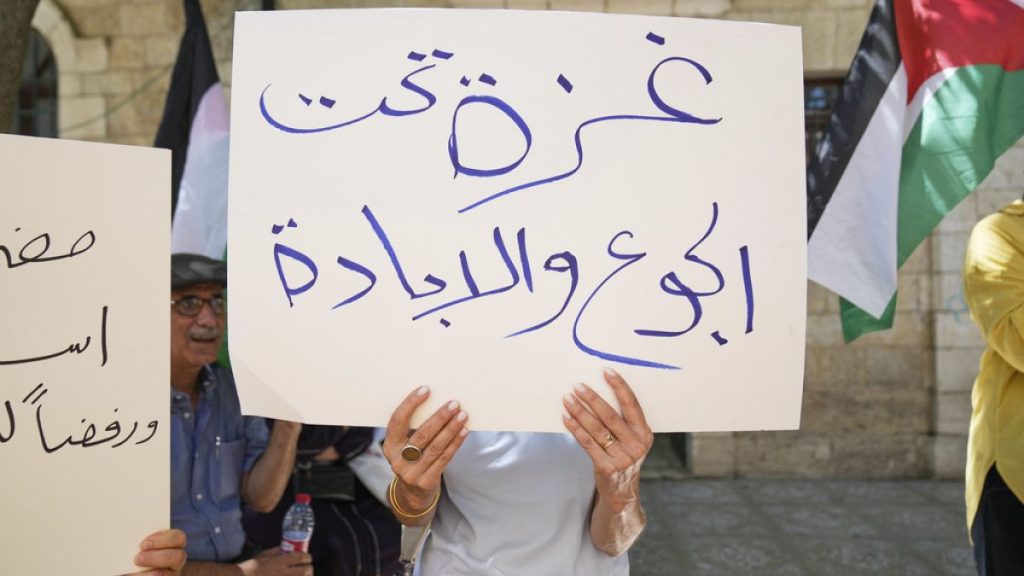 غزة تحت
الجوع والابادة
ورفضاً